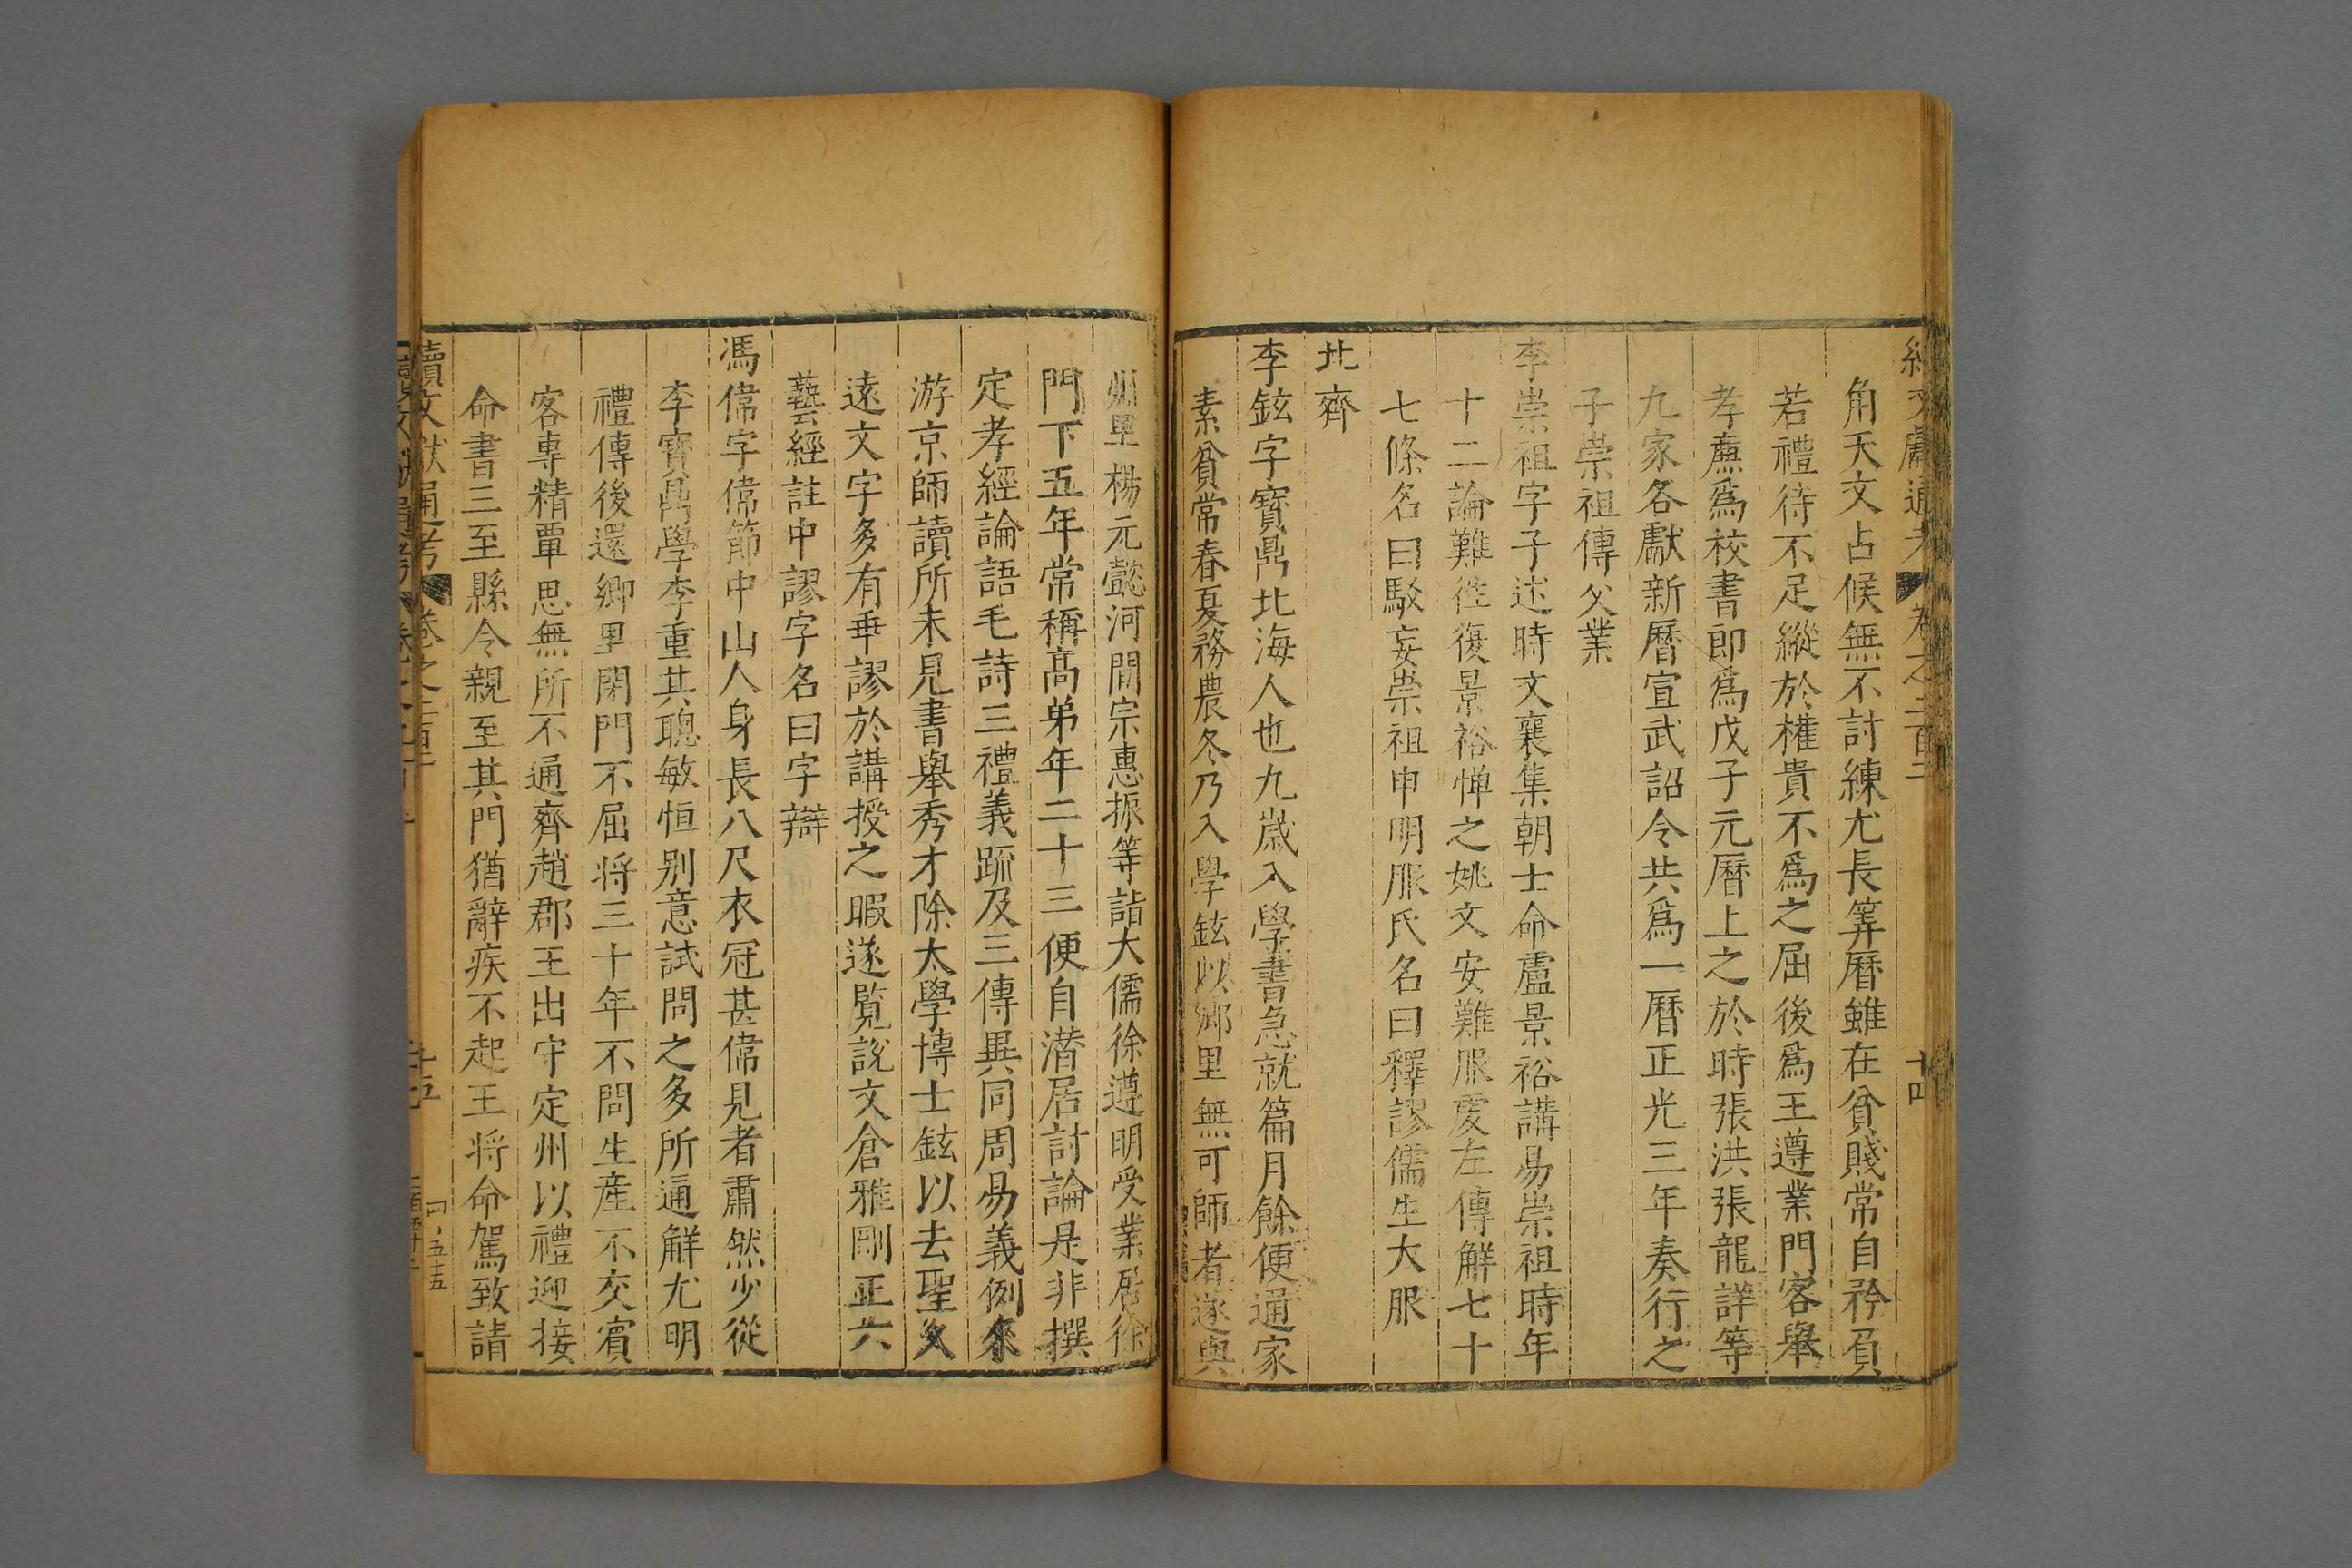 角天文占候無不討練尤長筭曆雖在貧賤常自矜負
若禮待不足縱於權貴不爲之屈後爲王遵業門客舉
孝廉爲校書郎爲戊子元曆上之於時張洪張龍詳等
九家各獻新曆宣武詔令共爲一曆正光三年奏行之
子崇祖傳父業
李崇祖字子述時文襄集朝士命盧景裕講易崇祖時年
十二論難徃復景裕憚之姚文安難服虔左傳觧七十
七條名曰駁妄崇祖申明服氏名曰釋謬儒生大服
北齊
李鉉字寶鼎北海人也九歲入學書急就篇月餘便通家
素貧常春夏務農冬乃入學鉉以鄉里無可師者遂與
州里楊元懿河間宗惠振等詣大儒徐遵明受業居徐
門下五年常稱高弟年二十三便自潛居討論是非撰
定孝經論語毛詩三禮義疏及三傳異同周易義例來
游京師讀所未見書舉秀才除太學博士鉉以去聖久
遠文字多有乖謬於講授之暇遂覧說文倉雅刪正六
藝經註中謬字名曰字辯
馮偉字偉節中山人身長八尺衣冠甚偉見者肅然少從
李寶鼎學李重其聰敏恒别意試問之多所通觧尤明
禮傳後還鄉里閉門不屈將三十年不問生産不交賓
客專精覃思無所不通齊趙郡王出守定州以禮迎接
命書三至縣令親至其門猶辭疾不起王將命駕致請
續文獻通考 卷之二百二 十五